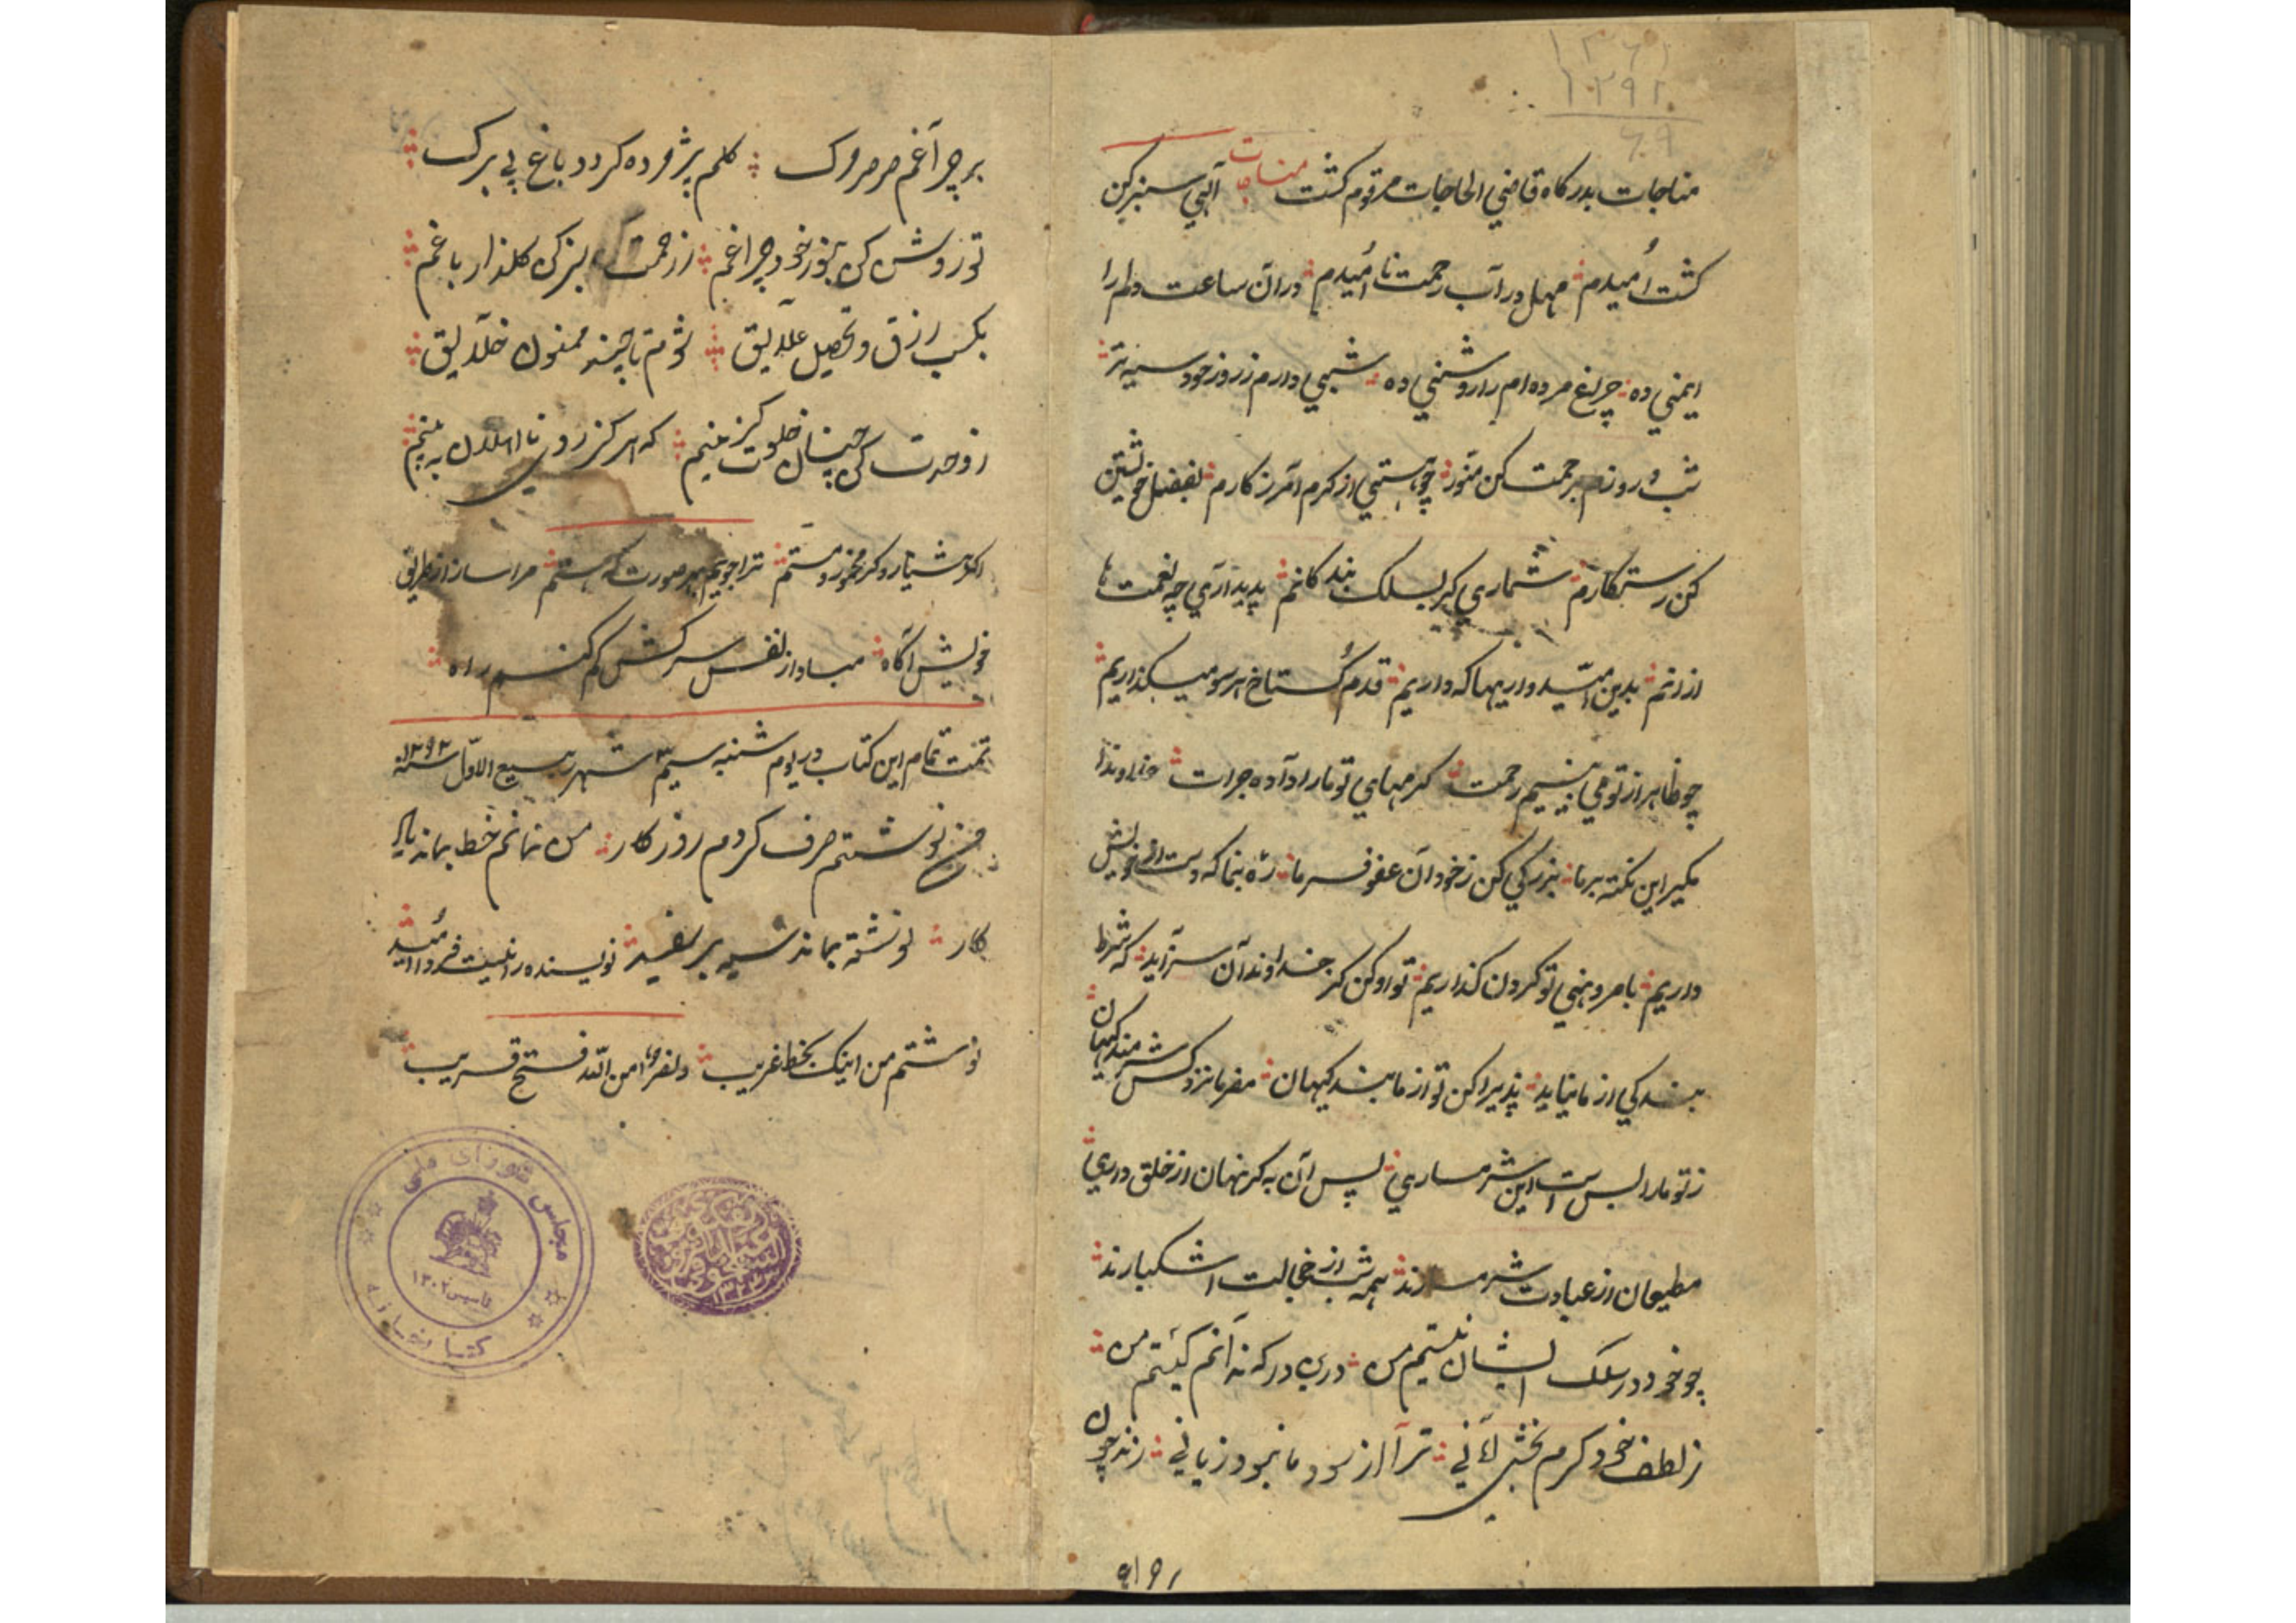 ۱۳۶۱
۱۲۹۲
۶۹
مناجات بدرکاه قاضي الحاجات مرقوم کشت مناجات آلهي سبز کن
کشت اُمیدم مهل در آب رحمت نا اُمیدم در آن ساعت دلم را
ایمني ده چراغ مرده ام را روشني ده شبي دارم ز روز خود سیه تر
شب و روزم برحمت کن منور چو هستي از کرم آمرزکارم بفضل خویشتن
کن رستکارم شماري کیر بسلک بندکانم پدید آري چه نعمت ها
از آنم بدین امّید واریها که داریم قدم کُستاخ هر سو میکذاریم
چو ظاهر از تو مي بینیم رحمت کرمهاي تو ما را داده جرات خداوندا
مکیر این نکته بر ما بزرکي کن ز خود آن عفو فرما ره بنما که دست از خویش
داریم بامر و نهي تو کردن کذاریم تو او کن کز خداوندان سزآید که شرط
بندکي از ما نیاید پذیرا کن تو از ما بندکیهان مفرما نزد کس شرمندکیهان
ز تو ما را بس است این شرمساري پس آن به کز نهان از خلق داري
مطیعان از عبادت شرمسارند همه شب از خجالت اشکبارند
چو خود در سلک ایشان نیستم من درین درکه ندآنم کیستم من
ز لطف خود کرم بخشي لآني ترا از سود ما نبود زیاني زند چون
۹۱۹۱
بر چرآغم صرصر مرک کلم پژمرده کردد باغ بي برک
تو روشن کن بنور خود چراغم ز رحمت سبز کن کلذار باغم
بکسب رزق و تحصیل علآیق نشوم تا چیند ممنون خلآیق
ز وحدت کن چنان خلوت کزینم که هرکز روي نا اهلان نه بینم
اکر هشیار و کر مخمور و مستم ترا جویم بهر صورت که هستم مرا ساز از طریق
خویش آکاه مبادا ز نفس سرکش کم کنم راه
تمت تمام این کتاب در یوم شنبه سیم شهر ربیع الاوّل سنه ۱۲۹۲
من نوشتم صرف کردم روزکار من نمانم خط بماند یاد
کار نوشته بماند سیه بر سفید نویسنده را نیست فردا اُمید
نوشتم من اینک بخط غریب و نصرٌ من الله فتح قریب
مجلس شورای ملی
تاسیس ۱۳۰۲
کتابخانه